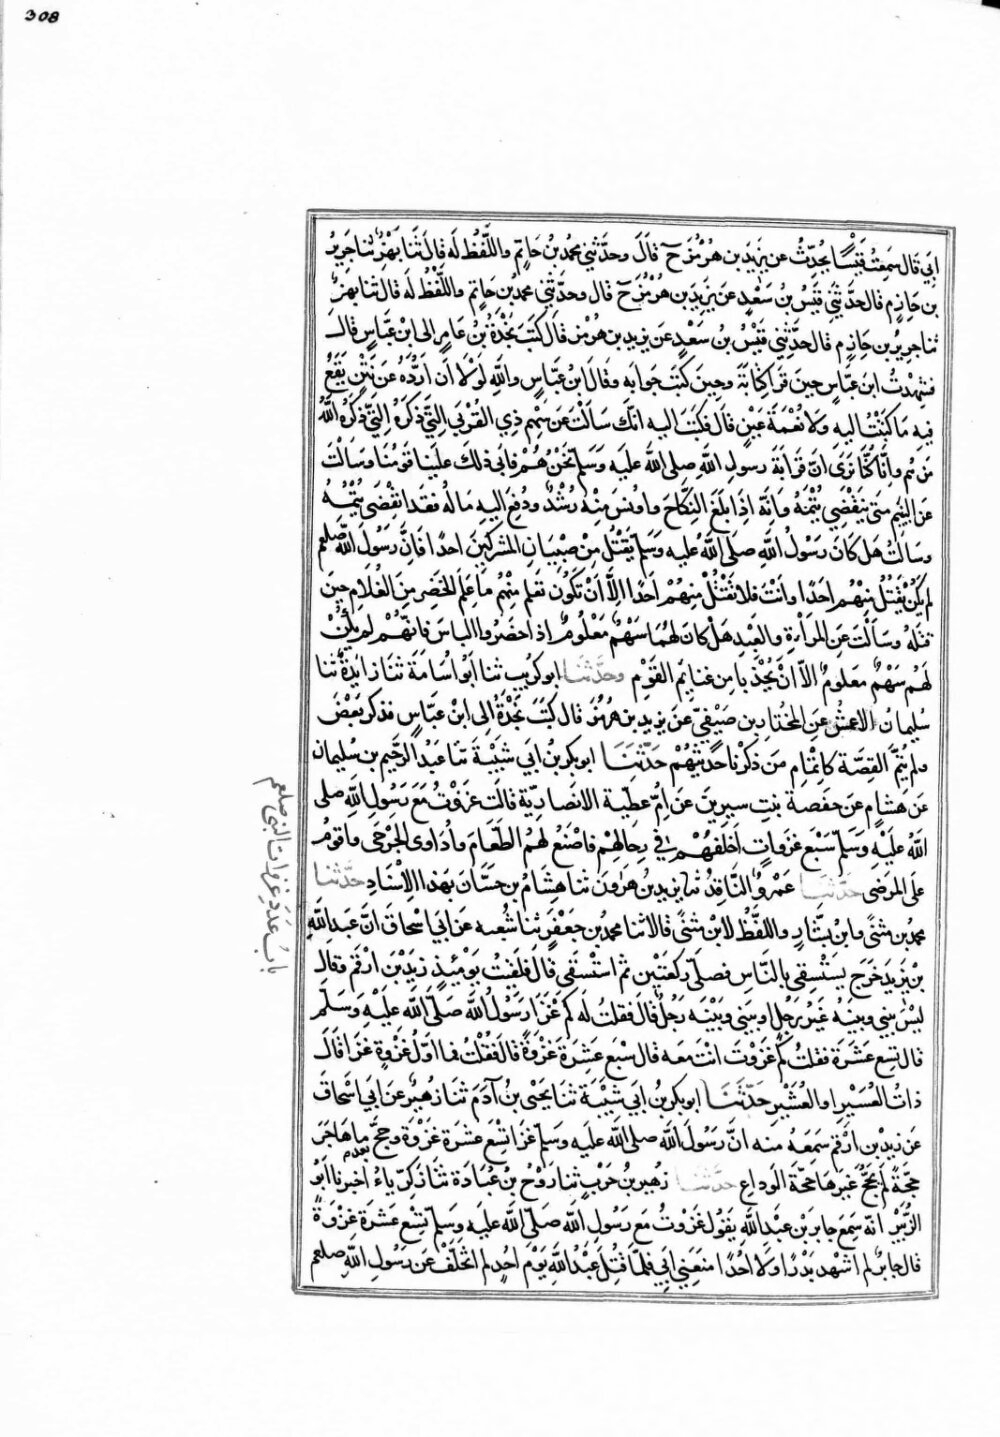 308
ابي قال سمعت قيسا يحدث عن يزيد بن هرمز ح قال وحدثني محمد بن حاتم واللفظ له قال ثنا بهز ثنا جرير
بن حازم قال حدثني قيس بن سعد عن يزيد بن هرمز ح قال وحدثني محمد بن حاتم واللفظ له قال ثنا بهز
ثنا جرير بن حازم قال حدثني قيس بن سعد عن يزيد بن هرمز قال كتب نجدة بن عامر الى ابن عباس قال
فشهدت ابن عباس حين قرا كتابه وحين كتب جوابه وقال ابن عباس والله لولا ان ارده عن نتن يقع
فيه ما كتبت اليه ولا نعمة عين قال فكتب اليه انك سالت عن سهم ذي القربى التي ذكره التي ذكره الله
من هم وانا كنا نرى ان قرابة رسول الله صلى الله عليه وسلم نحن هم فابى ذلك علينا قومنا وسالت
عن اليتيم متى ينقضي يتمه وانه اذا بلغ النكاح واونس منه رشد ودفع اليه ماله فقد انقضى يتمه
وسالت هل كان رسول الله صلى الله عليه وسلم يقتل من صبيان المشركين احدا فان رسول الله صلعم
لم يكن يقتل منهم احدا وانت فلا تقتل منهم احدا الا ان تكون تعلم منهم ما علم الخضر من الغلام حين
قتله وسالت عن المراة والعبد هل كان لهما سهم معلوم اذا حضروا الباس فانهم لم يكن
لهم سهم معلوم الا ان يحذيا من غنائم القوم وحدثنا ابو كريب ثنا ابو اسامة ثنا زايدة ثنا
سليمان الاعمش عن المختار بن صيفي عن يزيد بن هرمز قال كتب نجدة الى ابن عباس فذكر بعض
ولم يتم القصة كاتمام من ذكرنا حديثهم حدثنا ابو بكر بن ابي شيبة ثنا عبد الرحيم بن سليمان
عن هشام عن حفصة بنت سيرين عن ام عطية الانصارية قالت غزوت مع رسول الله صلى
الله عليه وسلم سبع غزوات اخلفهم في رحالهم فاصنع لهم الطعام واداوى الجرحى واقوم
على المرضى حدثنا عمرو الناقد ثنا يزيد بن هرون ثنا هشام بن حسان بهذا الاسناد حدثنا
محمد بن مثنى وابن بشار واللفظ لابن مثنى قالا ثنا محمد بن جعفر ثنا شعبه عن ابي اسحاق ان عبد الله
بن يزيد خرج يستسقى بالناس فصلى ركعتين ثم استسقى قال فلقيت يومئذ زيد بن ارقم وقال
ليس بيني وبينه غير رجل او بيني وبينه رجل قال فقلت له كم غزا رسول الله صلى الله عليه وسلم
قال تسع عشرة فقلت كم غزوت انت معه قال سبع عشرة غزوة قال فقلت فما اول غزوة غزا قال
ذات العسير او العشير حدثنا ابو بكر بن ابي شيبة ثنا يحيى بن آدم ثنا زهير عن ابي اسحاق
عن زيد بن ارقم سمعه منه ان رسول الله صلى الله عليه وسلم غزا تسع عشرة غزوة وحج بعدما هاجر
حجة لم يحج غيرها حجة الوداع حدثنا زهير بن حرب ثنا روح بن عبادة ثنا زكرياء اخبرنا ابو
الزبير انه سمع جابر بن عبد الله يقول غزوت مع رسول الله صلى الله عليه وسلم تسع عشرة غزوة
قال جابر لم اشهد بدرا ولا احدا منعني ابي فلما قتل عبد الله يوم احد لم اتخلف عن رسول الله صلعم
باب عدد غزوات النبي صلعم